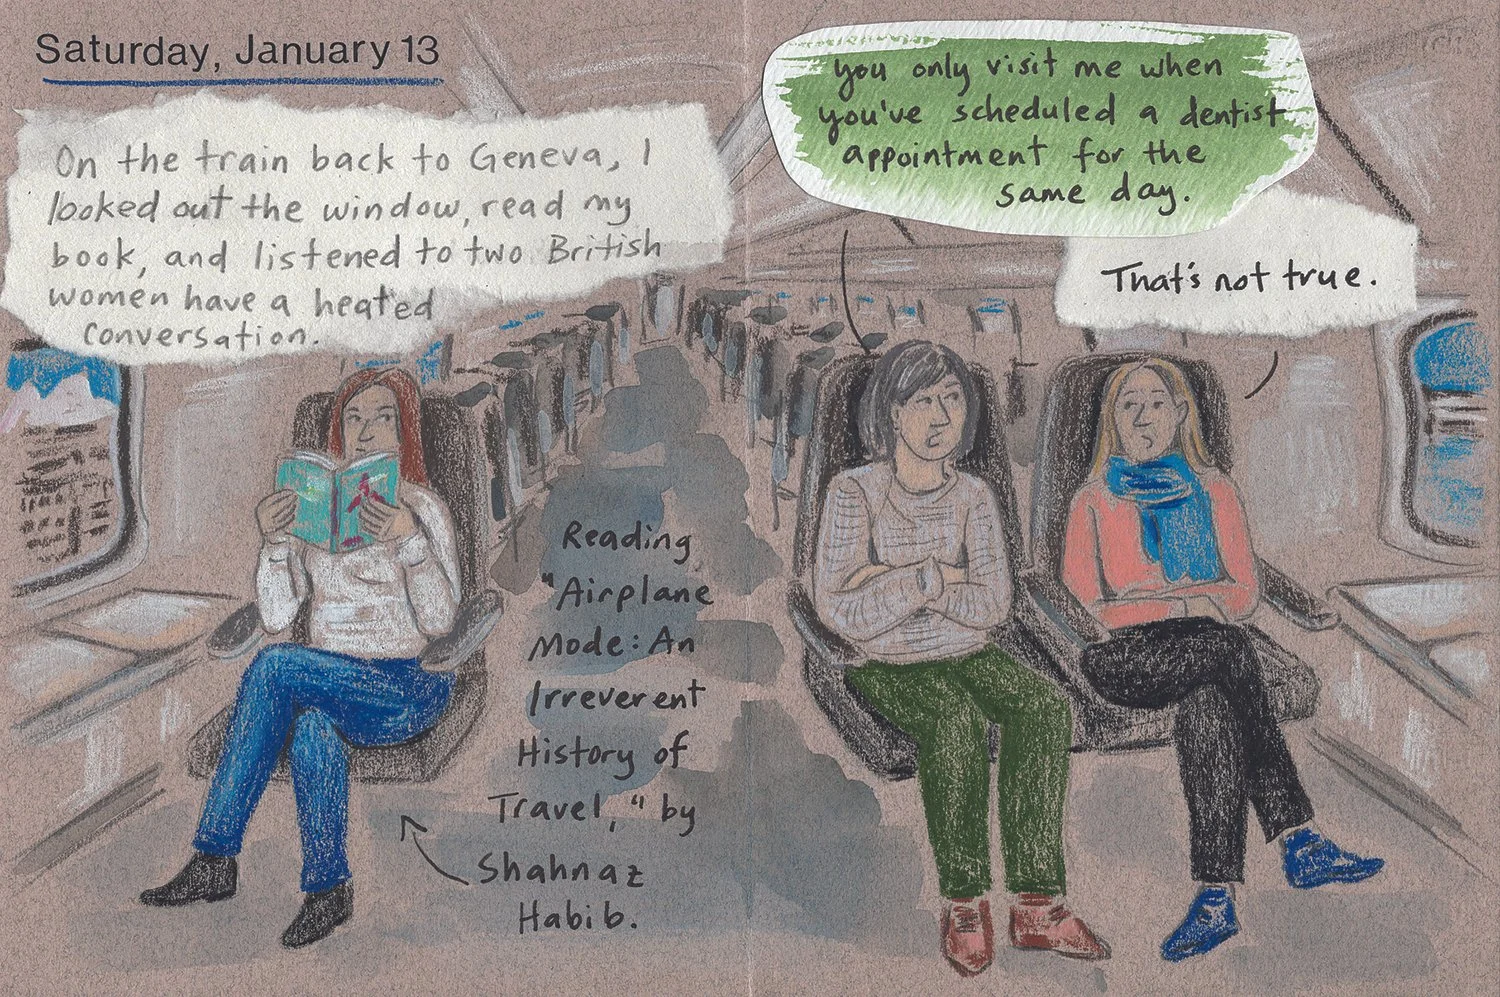 Saturday, January 13
On the train back to Geneva, I
looked out the window, read my
book, and listened to two British
women have a heated
conversation.
you only visit me when
you've scheduled a dentist
appointment for the
same day.
That's not true.
Reading
"Airplane
Mode: An
Irreverent
History of
Travel," by
Shahnaz
Habib.